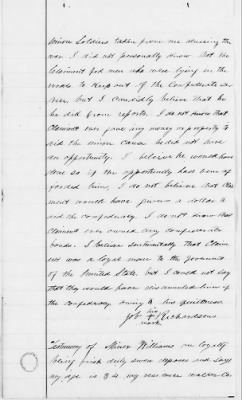 union Soldiers taken from me during the
war I did not personally know that the
Claimant fed men who were lying in the
woods to keep out of the Confederate ser
vice, but I candidly believe that he
did from reports. I do not know that
Claimant ever gave any money or property to
aid the union cause he did not have
an opportunity. I believe he would have
done so if the opportunity had been af
forded him, I do not believe that Clai
mant would have given a dollar to
aid the confederacy. I do not know that
Claimant ever owned any confederate
bonds. I believe sentimentally that Claim
ant was a loyal man to the government
of the United States but I could not say
that they would have discounted him if
the confederacy owing to his
his
Job X Richardson
mark
Testimony of Miner Williams on loyalty
being first duly sworn deposes and says
my age is 34 my residence